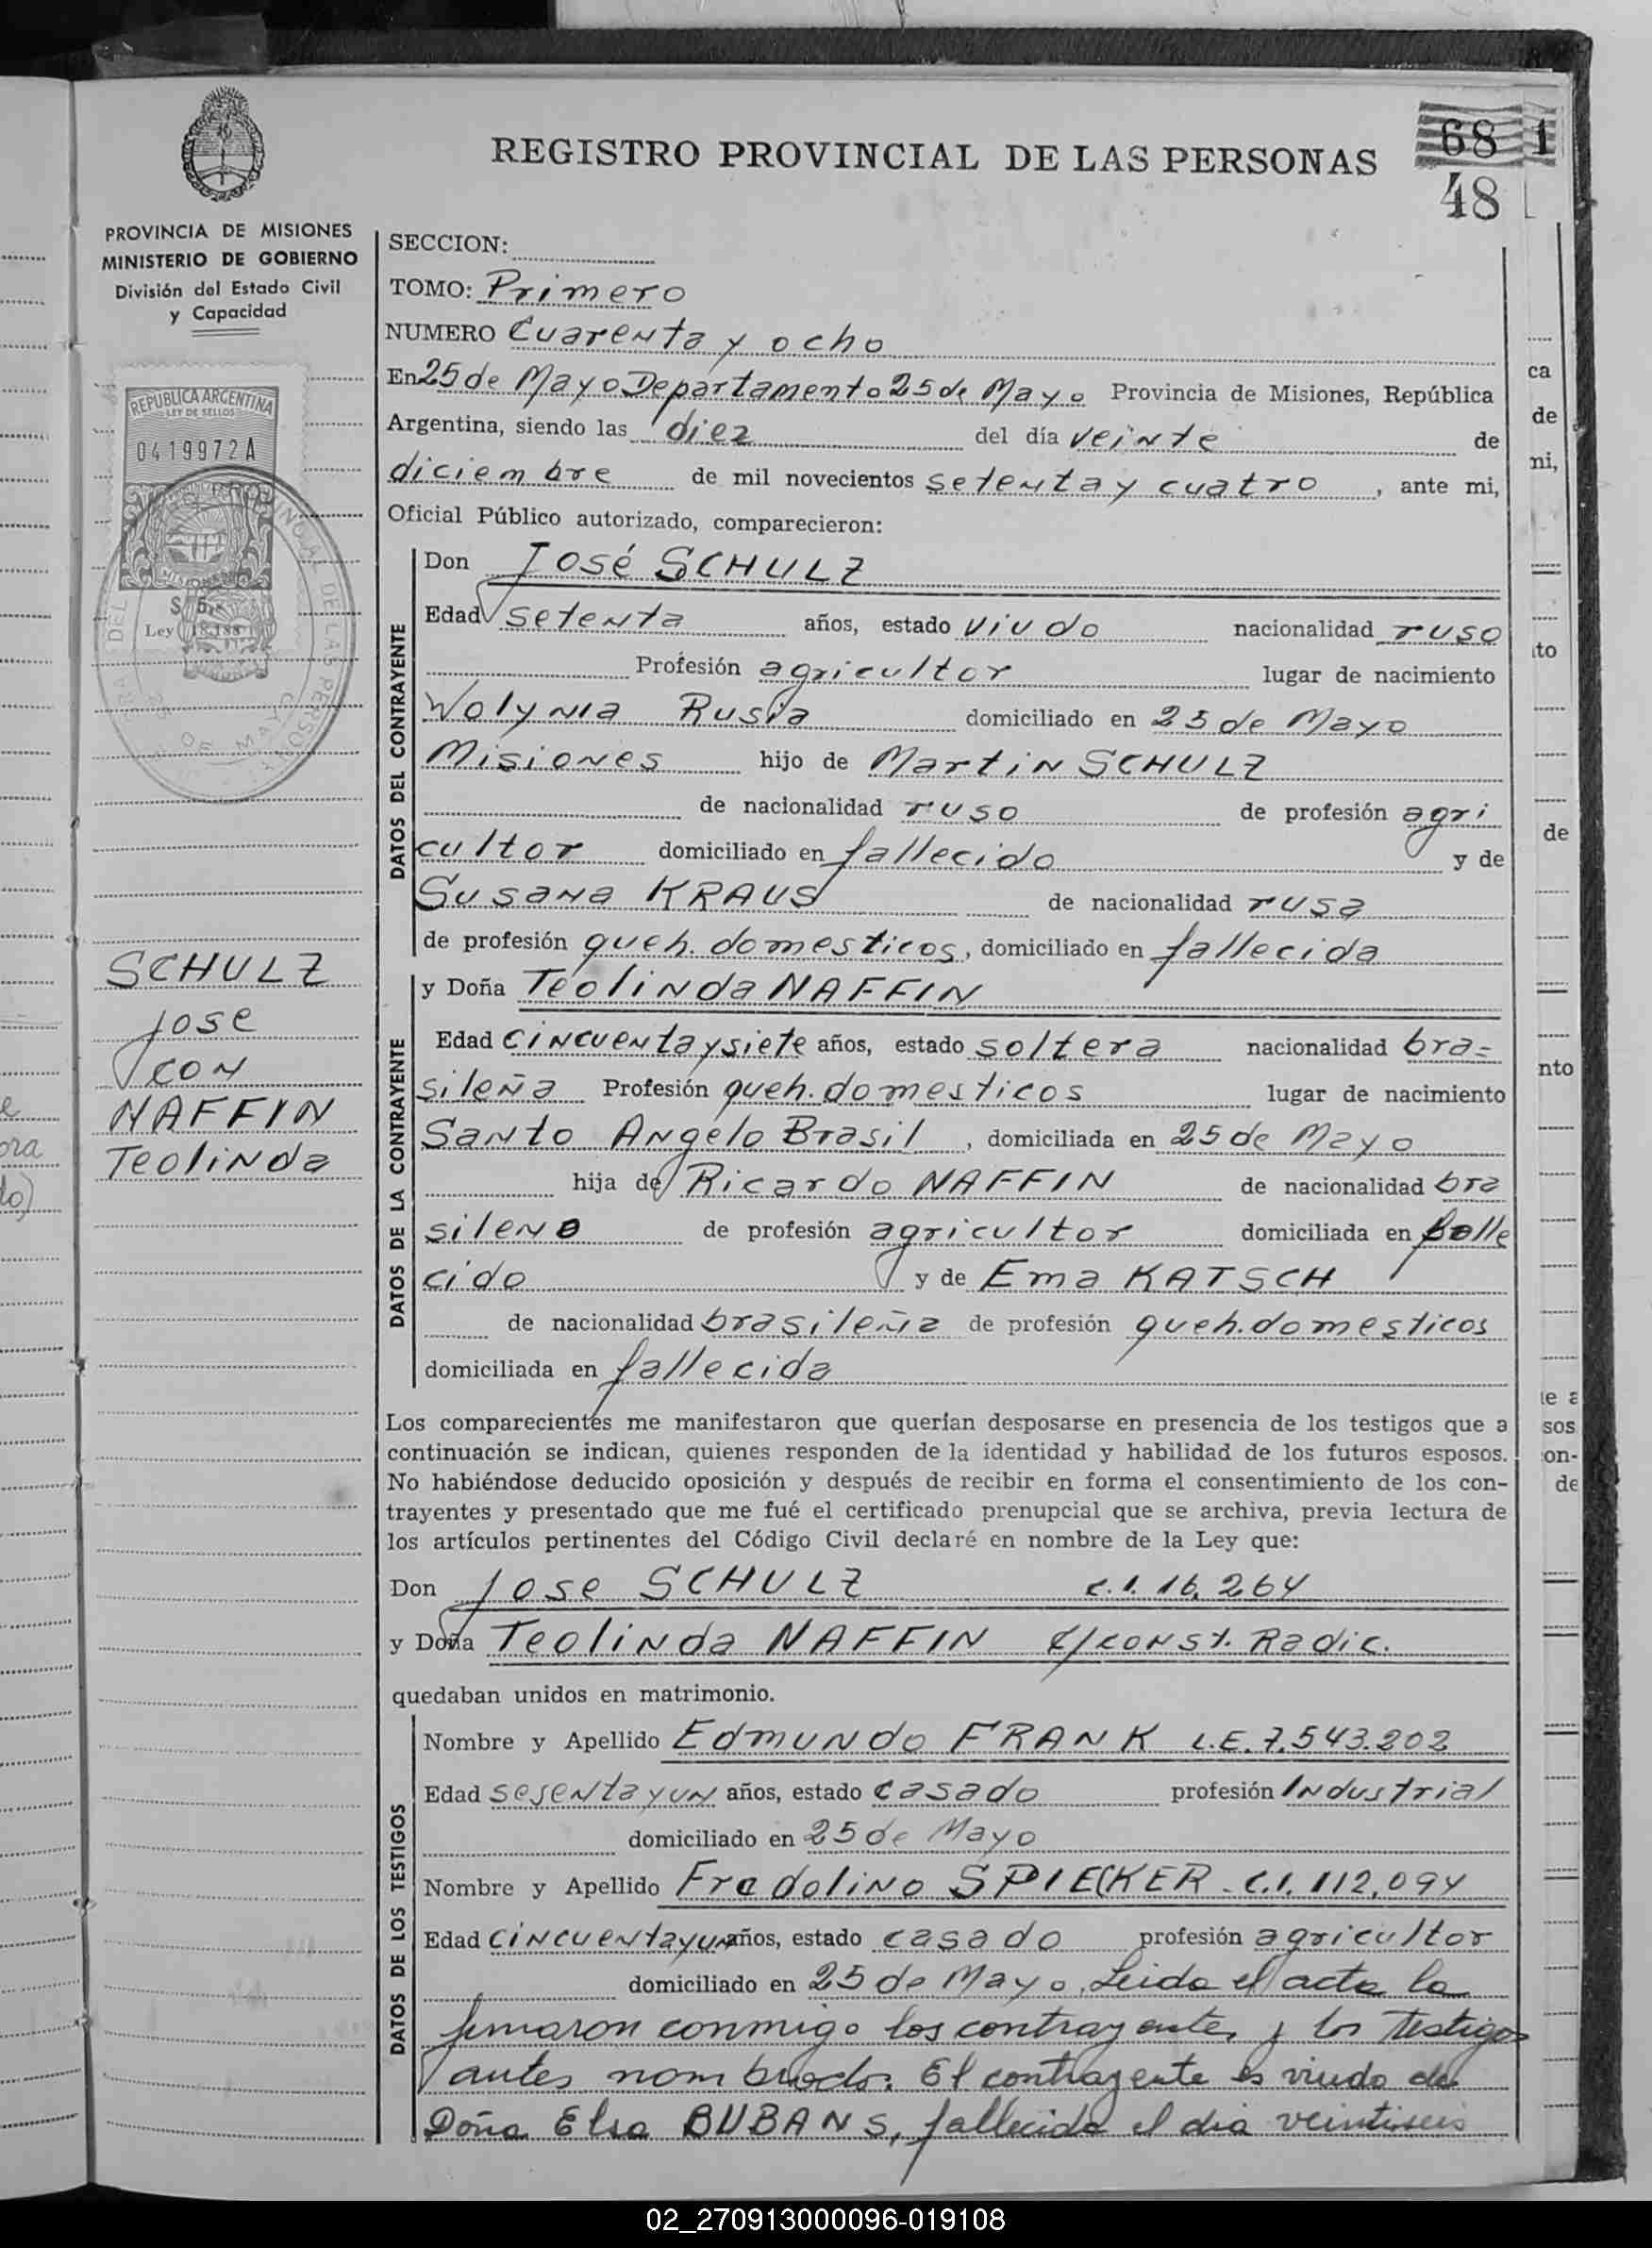 REGISTRO PROVINCIAL DE LAS PERSONAS
68 1
48
PROVINCIA DE MISIONES
MINISTERIO DE GOBIERNO
División del Estado Civil
y Capacidad
REPUBLICA ARGENTINA
LEY DE SELLOS
0419972A
MISIONES
Ley 18.188
SCHULZ
Jose
con
NAFFIN
Teolinda
SECCION:
TOMO: Primero
NUMERO Cuarenta y ocho
En 25 de Mayo Departamento 25 de Mayo Provincia de Misiones, República
Argentina, siendo las diez del día veinte de
diciembre de mil novecientos setenta y cuatro, ante mi,
Oficial Público autorizado, comparecieron:
DATOS DEL CONTRAYENTE
Don José SCHULZ
Edad setenta años, estado viudo nacionalidad ruso
Profesión agricultor lugar de nacimiento
Wolynia Rusia domiciliado en 25 de Mayo
Misiones hijo de Martin SCHULZ
de nacionalidad ruso de profesión agri
cultor domiciliado en fallecido y de
Susana KRAUS de nacionalidad rusa
de profesión queh. domesticos, domiciliado en fallecida
DATOS DE LA CONTRAYENTE
y Doña Teolinda NAFFIN
Edad cincuenta y siete años, estado soltera nacionalidad bra=
sileña Profesión queh. domesticos lugar de nacimiento
Santo Angelo Brasil, domiciliada en 25 de Mayo
hija de Ricardo NAFFIN de nacionalidad bra
sileno de profesión agricultor domiciliada en falle
cido y de Ema KATSCH
de nacionalidad brasileña de profesión queh. domesticos
domiciliada en fallecida
Los comparecientes me manifestaron que querían desposarse en presencia de los testigos que a
continuación se indican, quienes responden de la identidad y habilidad de los futuros esposos.
No habiéndose deducido oposición y después de recibir en forma el consentimiento de los con-
trayentes y presentado que me fué el certificado prenupcial que se archiva, previa lectura de
los artículos pertinentes del Código Civil declaré en nombre de la Ley que:
Don Jose SCHULZ C.I. 16.264
y Doña Teolinda NAFFIN c/const. Radic.
quedaban unidos en matrimonio.
DATOS DE LOS TESTIGOS
Nombre y Apellido Edmundo FRANK L.E. 7.543.202
Edad sesenta y un años, estado casado profesión Industrial
domiciliado en 25 de Mayo
Nombre y Apellido Fredolino SPIECKER - C.I. 112.094
Edad cincuenta y un años, estado casado profesión agricultor
domiciliado en 25 de Mayo. Leida el acta la
firmaron conmigo los contrayentes y los testigos
antes nombrados. El contrayente es viudo de
Doña Elsa BUBANS, fallecida el dia veintiseis
02_270913000096-019108